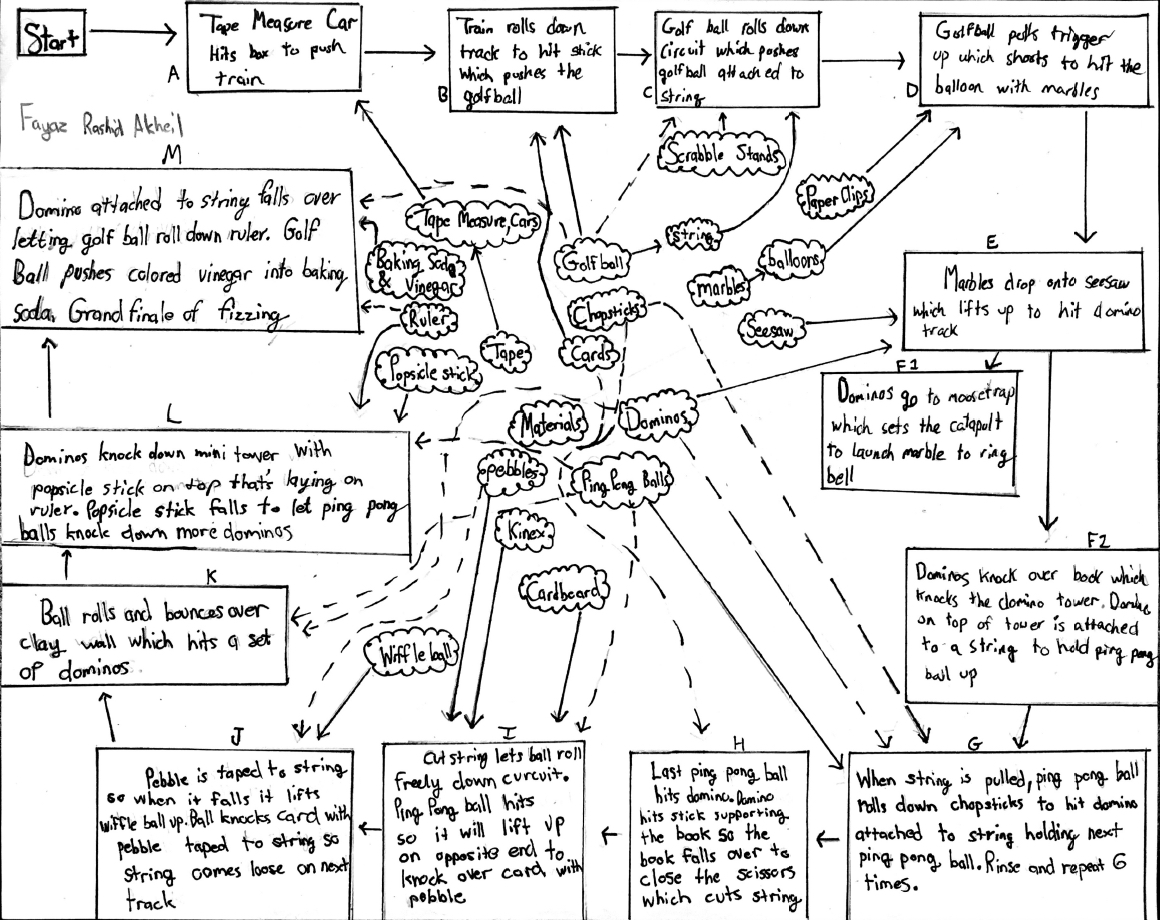 Start
A
Tape Measure Car
Hits box to push
train
B
Train rolls down
track to hit stick
which pushes the
golfball
C
Golf ball rolls down
Circuit which pushes
golfball attached to
string
D
Golfball pulls trigger
up which shoots to hit the
balloon with marbles
Fayaz Rashid Akheil
M
Domino attached to string falls over
letting golf ball roll down ruler. Golf
Ball pushes colored vinegar into baking
soda. Grand finale of fizzing
Tape Measure, Cars
Baking Soda
& Vinegar
Ruler
Popsicle stick
Tape
Golf ball
Chopsticks
Cards
Scrabble Stands
string
marbles
balloons
Paper Clips
Seesaw
Materials
Dominos
pebbles
Ping Pong Balls
Kinex
Cardboard
Wiffle ball
E
Marbles drop onto seesaw
which lifts up to hit domino
track
F1
Dominos go to moosetrap
which sets the catapult
to launch marble to ring
bell
F2
Dominos knock over book which
knocks the domino tower.
on top of tower is attached
to a string to hold ping pong
ball up
L
Dominos knock down mini tower with
popsicle stick on top that's laying on
ruler. Popsicle stick falls to let ping pong
balls knock down more dominos
K
Ball rolls and bounces over
clay wall which hits a set
of dominos
J
Pebble is taped to string
so when it falls it lifts
wiffle ball up. Ball knocks card with
pebble taped to string so
string comes loose on next
track
I
Cut string lets ball roll
freely down curcuit.
Ping Pong ball hits
so it will lift up
on opposite end to
knock over card with
pebble
H
Last ping pong ball
hits domino. Domino
hits stick supporting
the book so the
book falls over to
close the scissors
which cuts string
G
When string is pulled, ping pong ball
rolls down chopsticks to hit domino
attached to string holding next
ping pong ball. Rinse and repeat 6
times.